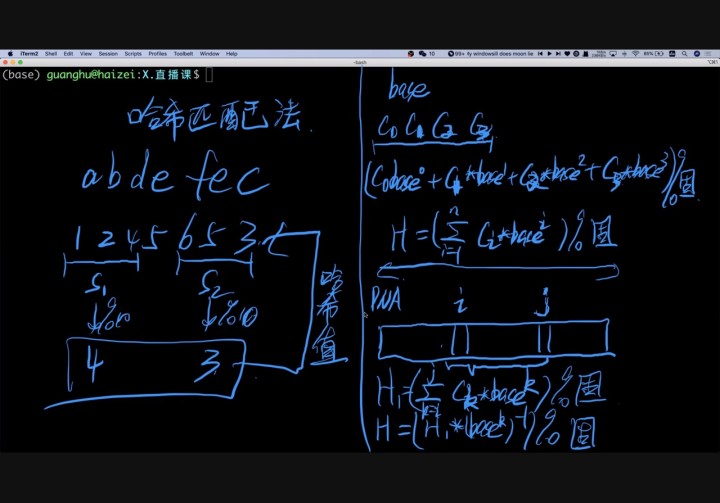 iTerm2 Shell Edit View Session Scripts Profiles Toolbelt Window Help
10 99+ 4y windowsill does moon lie 86%
-bash
(base) guanghu@haizei:X.直播课$
哈希匹配巴法
abde fec
1 2 4 5 6 5 3
S1 S2
%10 %10
4 3
哈希值
base
C0 C1 C2 C3
(C0base^0 + C1*base^1 + C2*base^2 + C3*base^3)%固
H=(∑_{i=1}^{n} Ci*base^i)%固
DNA i j
H1=(∑ Ck*base^k)%固
H=(H1*(base^k)^-1)%固